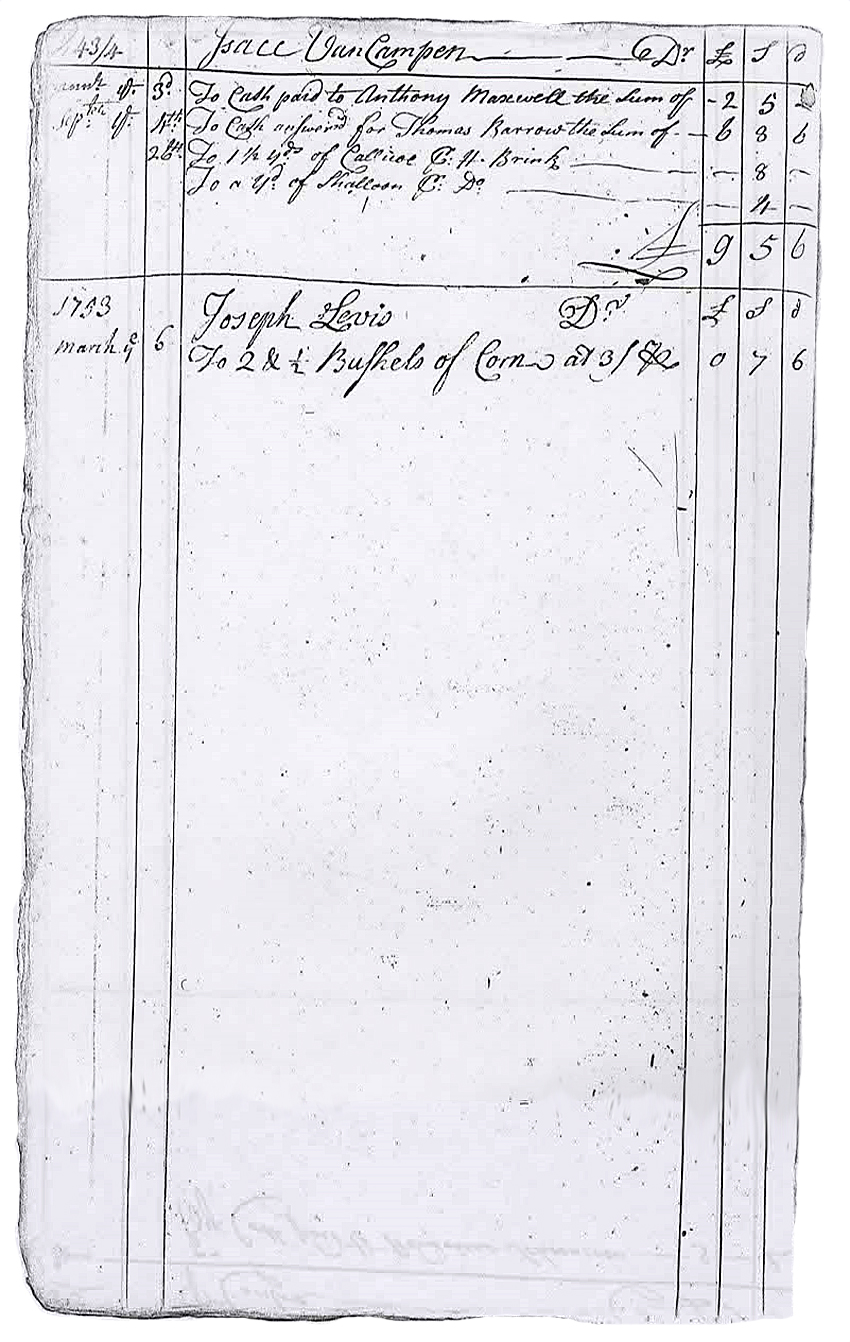 43/4 Isacc VanCampen Dr £ S d
March ye 3d To Cash paid to Anthony Maxwell the Sum of - 2 5
Septbr ye 4th To Cash answerd for Thomas Barrow the Sum of - 6 8 6
26th To 1 ½ yds of Callicoe P: H. Brink - 8 -
To a Yd of Shalloon P: Do - 4 -
9 5 6
1753 Joseph Levis Dr £ S d
March ye 6 To 2 & ½ Bushels of Corn at 3/ 0 7 6